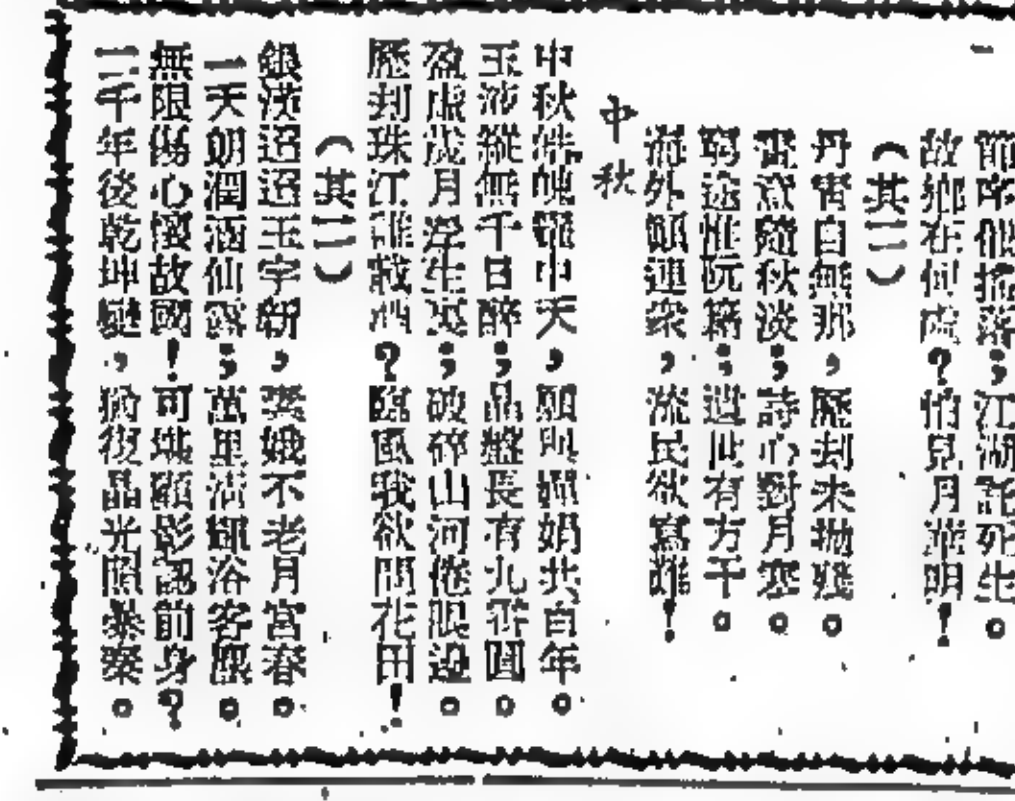 一
節序他搖落；江湖託死生。
故鄉在何處？怕見月華明！
（其二）
丹霄自無那，歷刦未拋殘。
意隨秋淡；詩心對月寒。
窮途惟阮籍；遺世有方干。
海外顛連衆，流民欲寫難！
中秋
中秋皓魄耀中天，願與嬋娟共百年。
玉沛縱無千日醉；晶盤長有九霄圓。
盈虛歲月浮生裏；破碎山河倦眼邊。
歷刦珠江誰載酒？臨風我欲問花田！
（其二）
銀漢迢迢玉宇新，嫦娥不老月宮春。
一天朗潤涵仙露；萬里淸輝浴客塵。
無限傷心懷故國！可堪顧影認前身？
二千年後乾坤變，猶復晶光照暴秦。